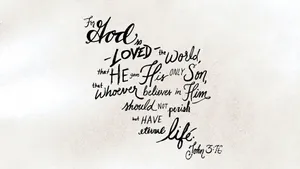 For
God so
-LOVED- the World,
that HE gave His ONLY Son,
that whoever believes in Him
should NOT perish
but HAVE
eternal life.
John 3:16